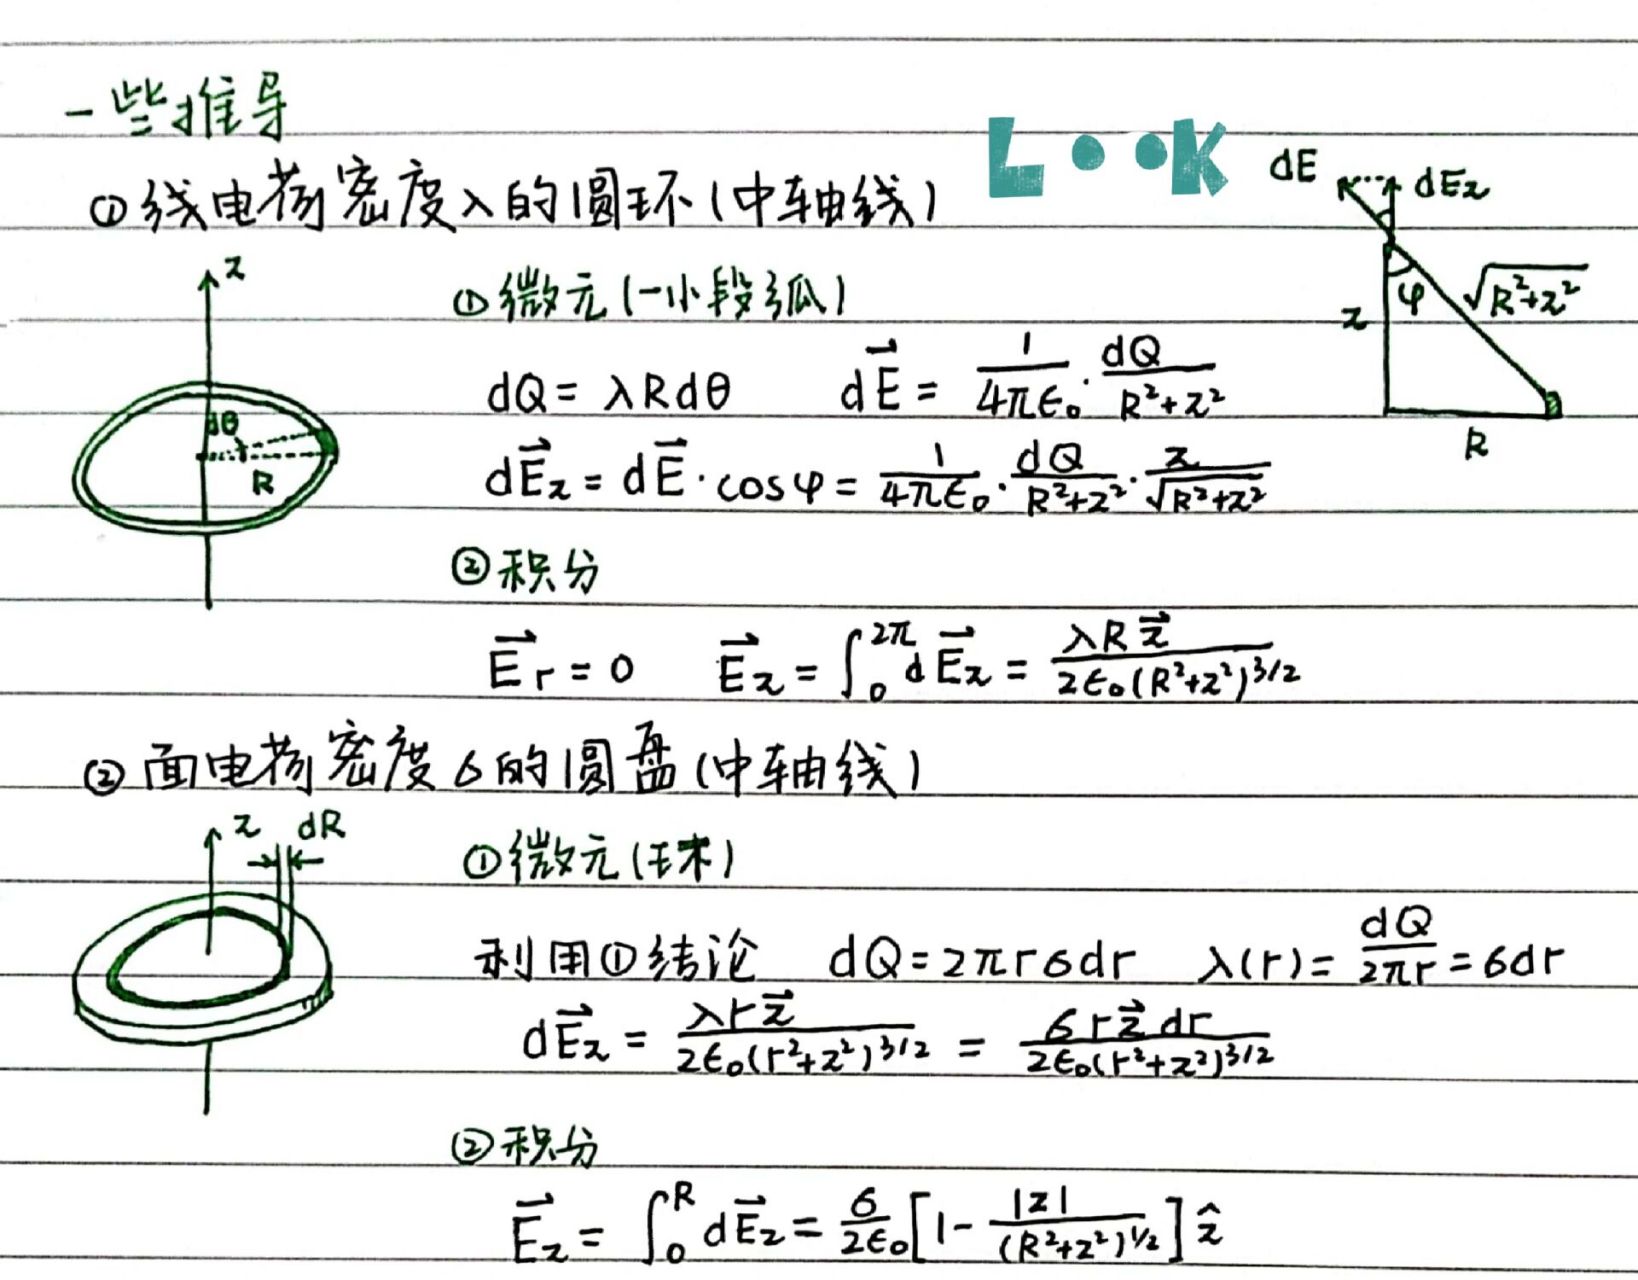 一些推导
LooK
①线电荷密度λ的圆环(中轴线)
dE dEz
z φ √R²+z²
R
z
dθ
R
①微元(一小段弧)
dQ = λRdθ dE⃗ = 1/4πϵ₀ · dQ/R²+z²
dE⃗z = dE⃗ · cosφ = 1/4πϵ₀ · dQ/R²+z² · z/√R²+z²
②积分
E⃗r = 0 E⃗z = ∫₀^2π dE⃗z = λRz⃗/2ϵ₀(R²+z²)^3/2
②面电荷密度σ的圆盘(中轴线)
z dR
①微元(环)
利用①结论 dQ=2πrσdr λ(r)= dQ/2πr = σdr
dE⃗z = λrz⃗/2ϵ₀(r²+z²)^3/2 = σrz⃗dr/2ϵ₀(r²+z²)^3/2
②积分
E⃗z = ∫₀^R dE⃗z = σ/2ϵ₀ [1 - |z|/(R²+z²)^1/2] ẑ